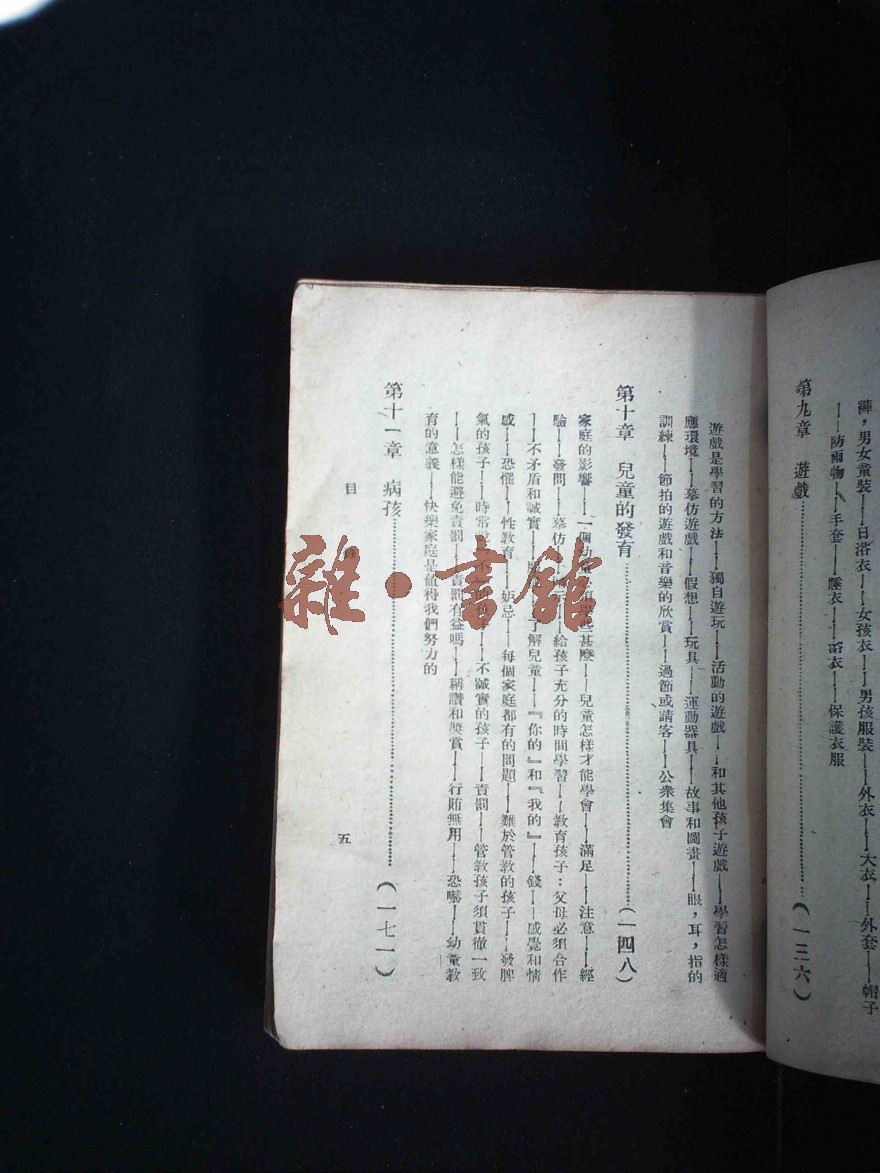 褲，男女童裝——日浴衣——女孩衣——男孩服裝——外衣——大衣——外套——帽子
——防雨物——手套——睡衣——浴衣——保護衣服
第九章 遊戲……(一三六)
遊戲是學習的方法——獨自遊玩——活動的遊戲——和其他孩子遊戲——學習怎樣適
應環境——摹仿遊戲——假想——玩具——運動器具——故事和圖畫——眼，耳，指的
訓練——節拍的遊戲和音樂的欣賞——過節或請客——公衆集會
第十章 兒童的發育……(一四八)
家庭的影響——一個幼甚麼——兒童怎樣才能學會——滿足——注意——經
驗——發問——摹仿——給孩子充分的時間學習——教育孩子：父母必須合作
——不矛盾和誠實——了解兒童——『你的』和『我的』——錢——感覺和情
感——恐懼——性教育——妒忌——每個家庭都有的問題——難於管教的孩子——發脾
氣的孩子——時常說不——不誠實的孩子——責罰——管教孩子須貫徹一致
——怎樣能避免責罰——責罰有益嗎——稱讚和獎賞——行賄無用——恐嚇——幼童教
育的意義——快樂家庭是值得我們努力的
第十一章 病孩……(一七一)
目
五
雜·書館